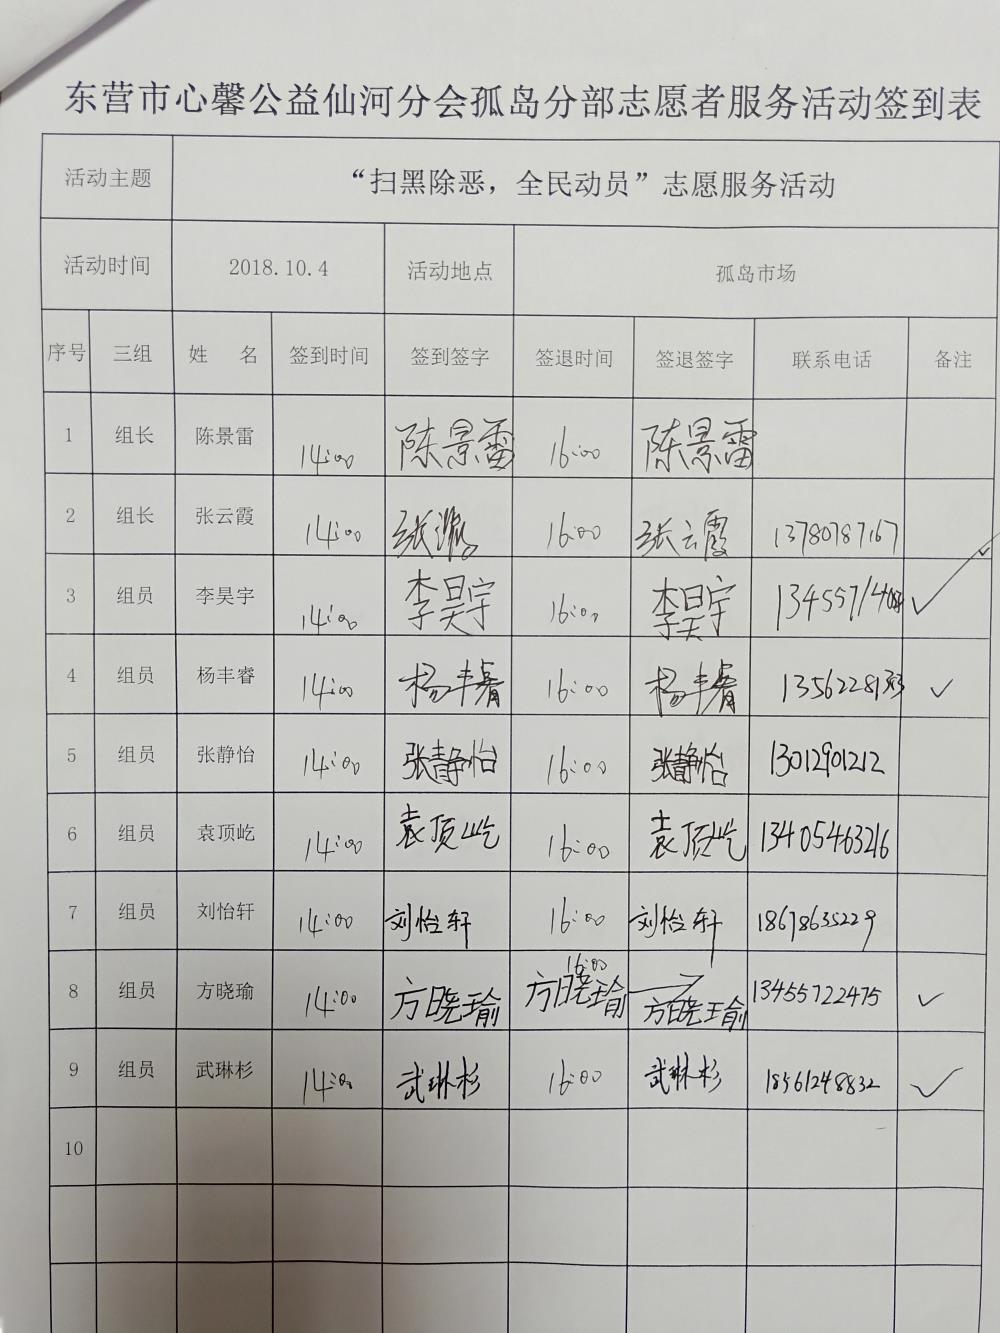 东营市心馨公益仙河分会孤岛分部志愿者服务活动签到表
活动主题 “扫黑除恶，全民动员”志愿服务活动
活动时间 2018.10.4 活动地点 孤岛市场
序号 三组 姓 名 签到时间 签到签字 签退时间 签退签字 联系电话 备注
1 组长 陈景雷 14:00 陈景雷 16:00 陈景雷
2 组长 张云霞 14:00 16:00 张云霞 13780787167
3 组员 李昊宇 14:00 李昊宇 16:00 李昊宇 ✓
4 组员 杨丰睿 14:00 杨丰睿 16:00 杨丰睿 ✓
5 组员 张静怡 14:00 张静怡 16:00 张静怡 13012901212
6 组员 袁顶屹 14:00 袁顶屹 16:00 袁顶屹 13405463216
7 组员 刘怡轩 14:00 刘怡轩 16:00 刘怡轩 18678635229
8 组员 方晓瑜 14:00 方晓瑜 16:00 方晓瑜 方晓瑜 13455722475 ✓
9 组员 武琳杉 14:00 武琳杉 16:00 武琳杉 18561248832 ✓
10